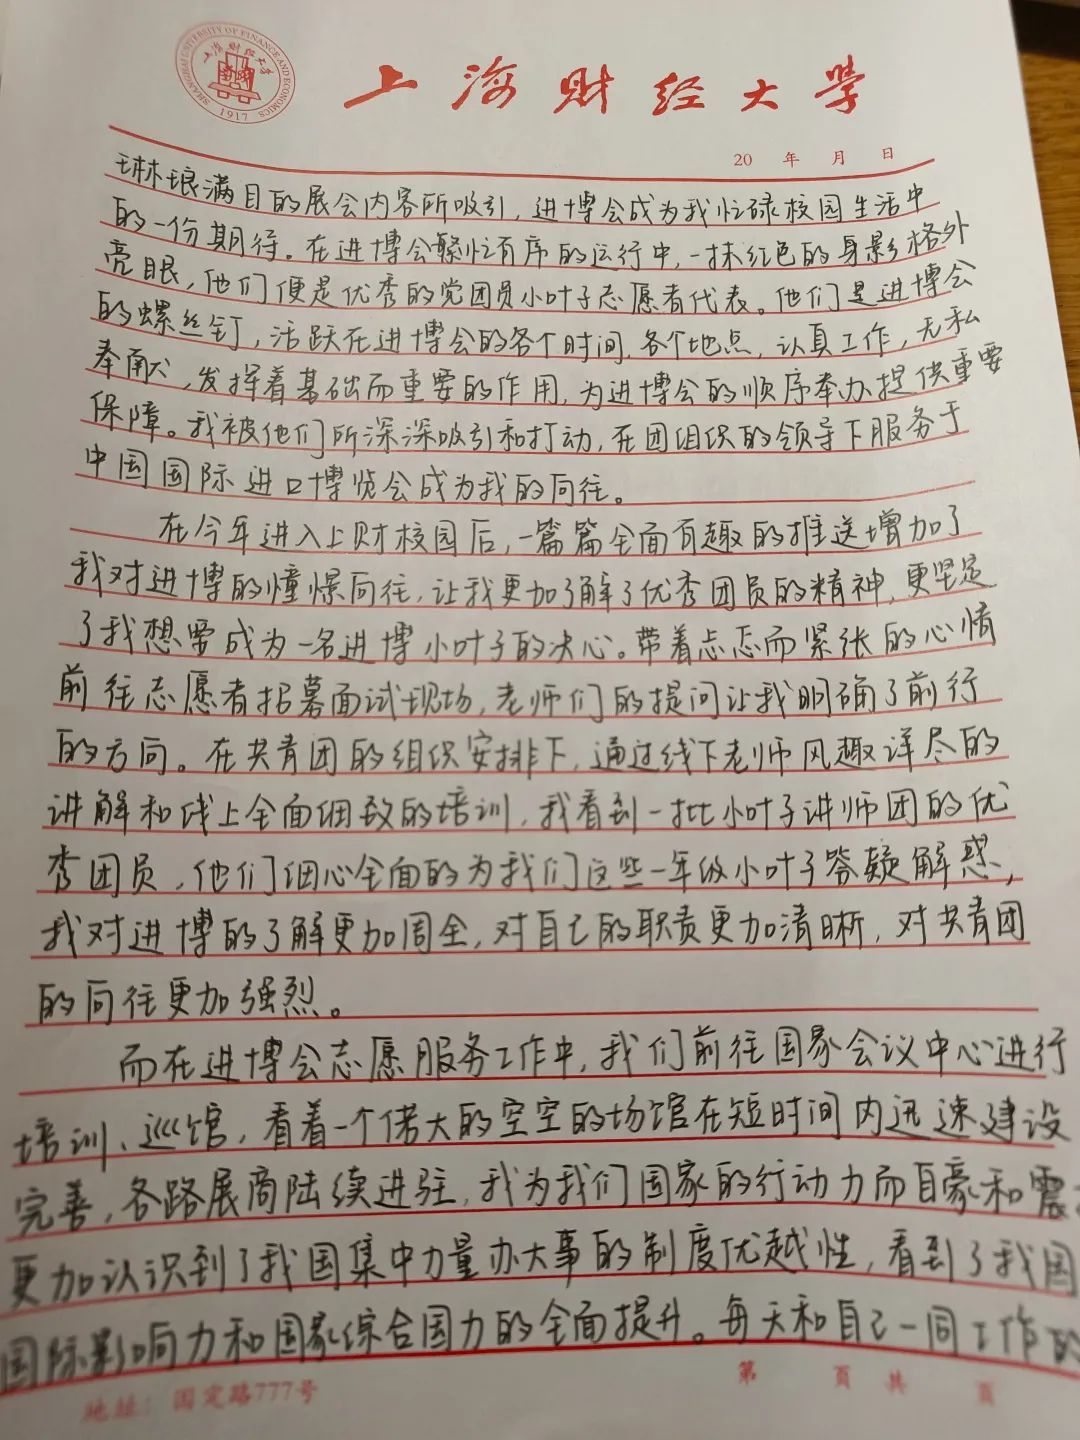 SHANGHAI UNIVERSITY OF FINANCE AND ECONOMICS
上海财经大学
1917
上海财经大学
20 年 月 日
琳琅满目的展会内容所吸引，进博会成为我忙碌校园生活中
的一份期待。在进博会繁忙有序的运行中，一抹红色的身影格外
亮眼，他们便是优秀的党团员小叶子志愿者代表。他们是进博会
的螺丝钉，活跃在进博会的各个时间，各个地点，认真工作，无私
奉献，发挥着基础而重要的作用，为进博会的顺序举办提供重要
保障。我被他们所深深吸引和打动，在团组织的领导下服务于
中国国际进口博览会成为我的向往。
在今年进入上财校园后，一篇篇全面有趣的推送增加了
我对进博的憧憬向往，让我更加了解了优秀团员的精神，更坚定
了我想要成为一名进博小叶子的决心。带着忐忑而紧张的心情
前往志愿者招募面试现场，老师们的提问让我明确了前行
的方向。在共青团的组织安排下，通过线下老师风趣详尽的
讲解和线上全面细致的培训，我看到一批小叶子讲师团的优
秀团员，他们细心全面的为我们这些一年级小叶子答疑解惑，
我对进博的了解更加周全，对自己的职责更加清晰，对共青团
的向往更加强烈。
而在进博会志愿服务工作中，我们前往国家会议中心进行
培训、巡馆，看着一个偌大的空空的场馆在短时间内迅速建设
完善，各路展商陆续进驻，我为我们国家的行动力而自豪和震
更加认识到了我国集中力量办大事的制度优越性，看到了我国
国际影响力和国家综合国力的全面提升。每天和自己一同工作的
地址：国定路777号
第 頁 共 頁